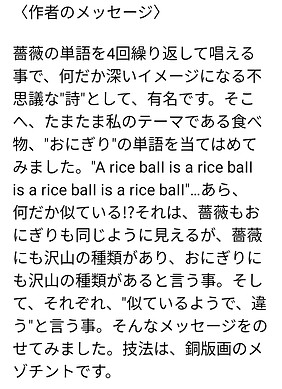 〈作者のメッセージ〉
薔薇の単語を4回繰り返して唱える
事で、何だか深いイメージになる不
思議な"詩"として、有名です。そこ
へ、たまたま私のテーマである食べ
物、"おにぎり"の単語を当てはめて
みました。"A rice ball is a rice ball
is a rice ball is a rice ball"…あら、
何だか似ている!?それは、薔薇もお
にぎりも同じように見えるが、薔薇
にも沢山の種類があり、おにぎりに
も沢山の種類があると言う事。そし
て、それぞれ、"似ているようで、違
う"と言う事。そんなメッセージをの
せてみました。技法は、銅版画のメ
ゾチントです。